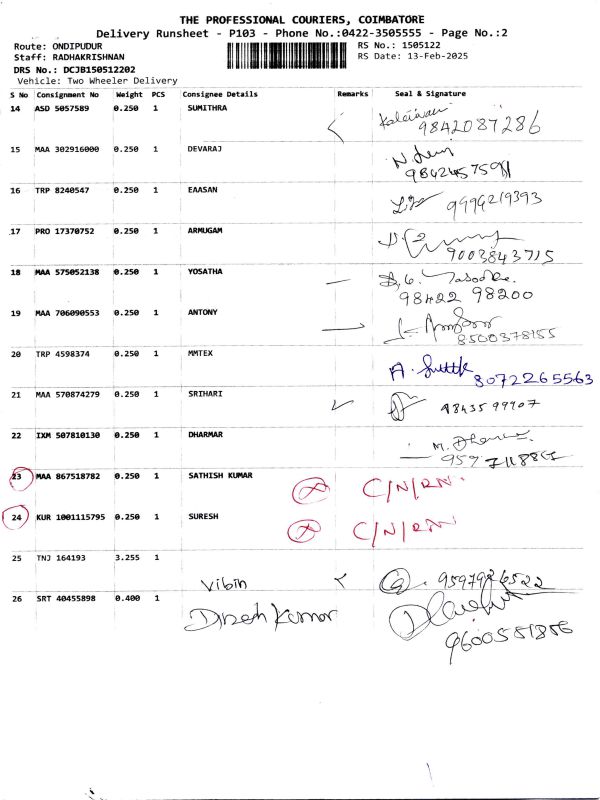 THE PROFESSIONAL COURIERS, COIMBATORE
Delivery Runsheet - P103 - Phone No.:0422-3505555 - Page No.:2
Route: ONDIPUDUR RS No.: 1505122
Staff: RADHAKRISHNAN RS Date: 13-Feb-2025
DRS No.: DCJB150512202
Vehicle: Two Wheeler Delivery
S No Consignment No Weight PCS Consignee Details Remarks Seal & Signature
14 ASD 5057589 0.250 1 SUMITHRA
9842087286
15 MAA 302916000 0.250 1 DEVARAJ
16 TRP 8240547 0.250 1 EAASAN 9994219393
17 PRO 17370752 0.250 1 ARMUGAM
9003843715
18 MAA 575052138 0.250 1 YOSATHA
98422 98200
19 MAA 706090553 0.250 1 ANTONY
8500378155
20 TRP 4598374 0.250 1 MMTEX
8072265563
21 MAA 570874279 0.250 1 SRIHARI
22 IXM 507810130 0.250 1 DHARMAR
23 MAA 867518782 0.250 1 SATHISH KUMAR C/N/RN.
24 KUR 1001115795 0.250 1 SURESH C/N/RN
25 TNJ 164193 3.255 1
Vibin 9597926522
26 SRT 40455898 0.400 1
Dinesh Kumar
9600551856